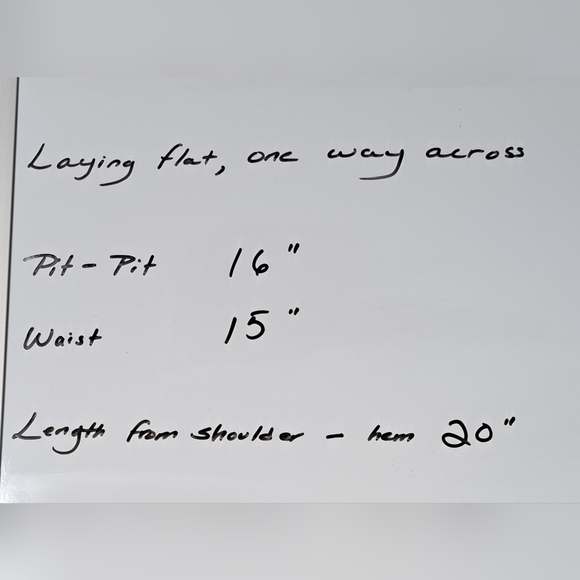 Laying flat, one way across
Pit - Pit 16"
Waist 15"
Length from shoulder - hem 20"